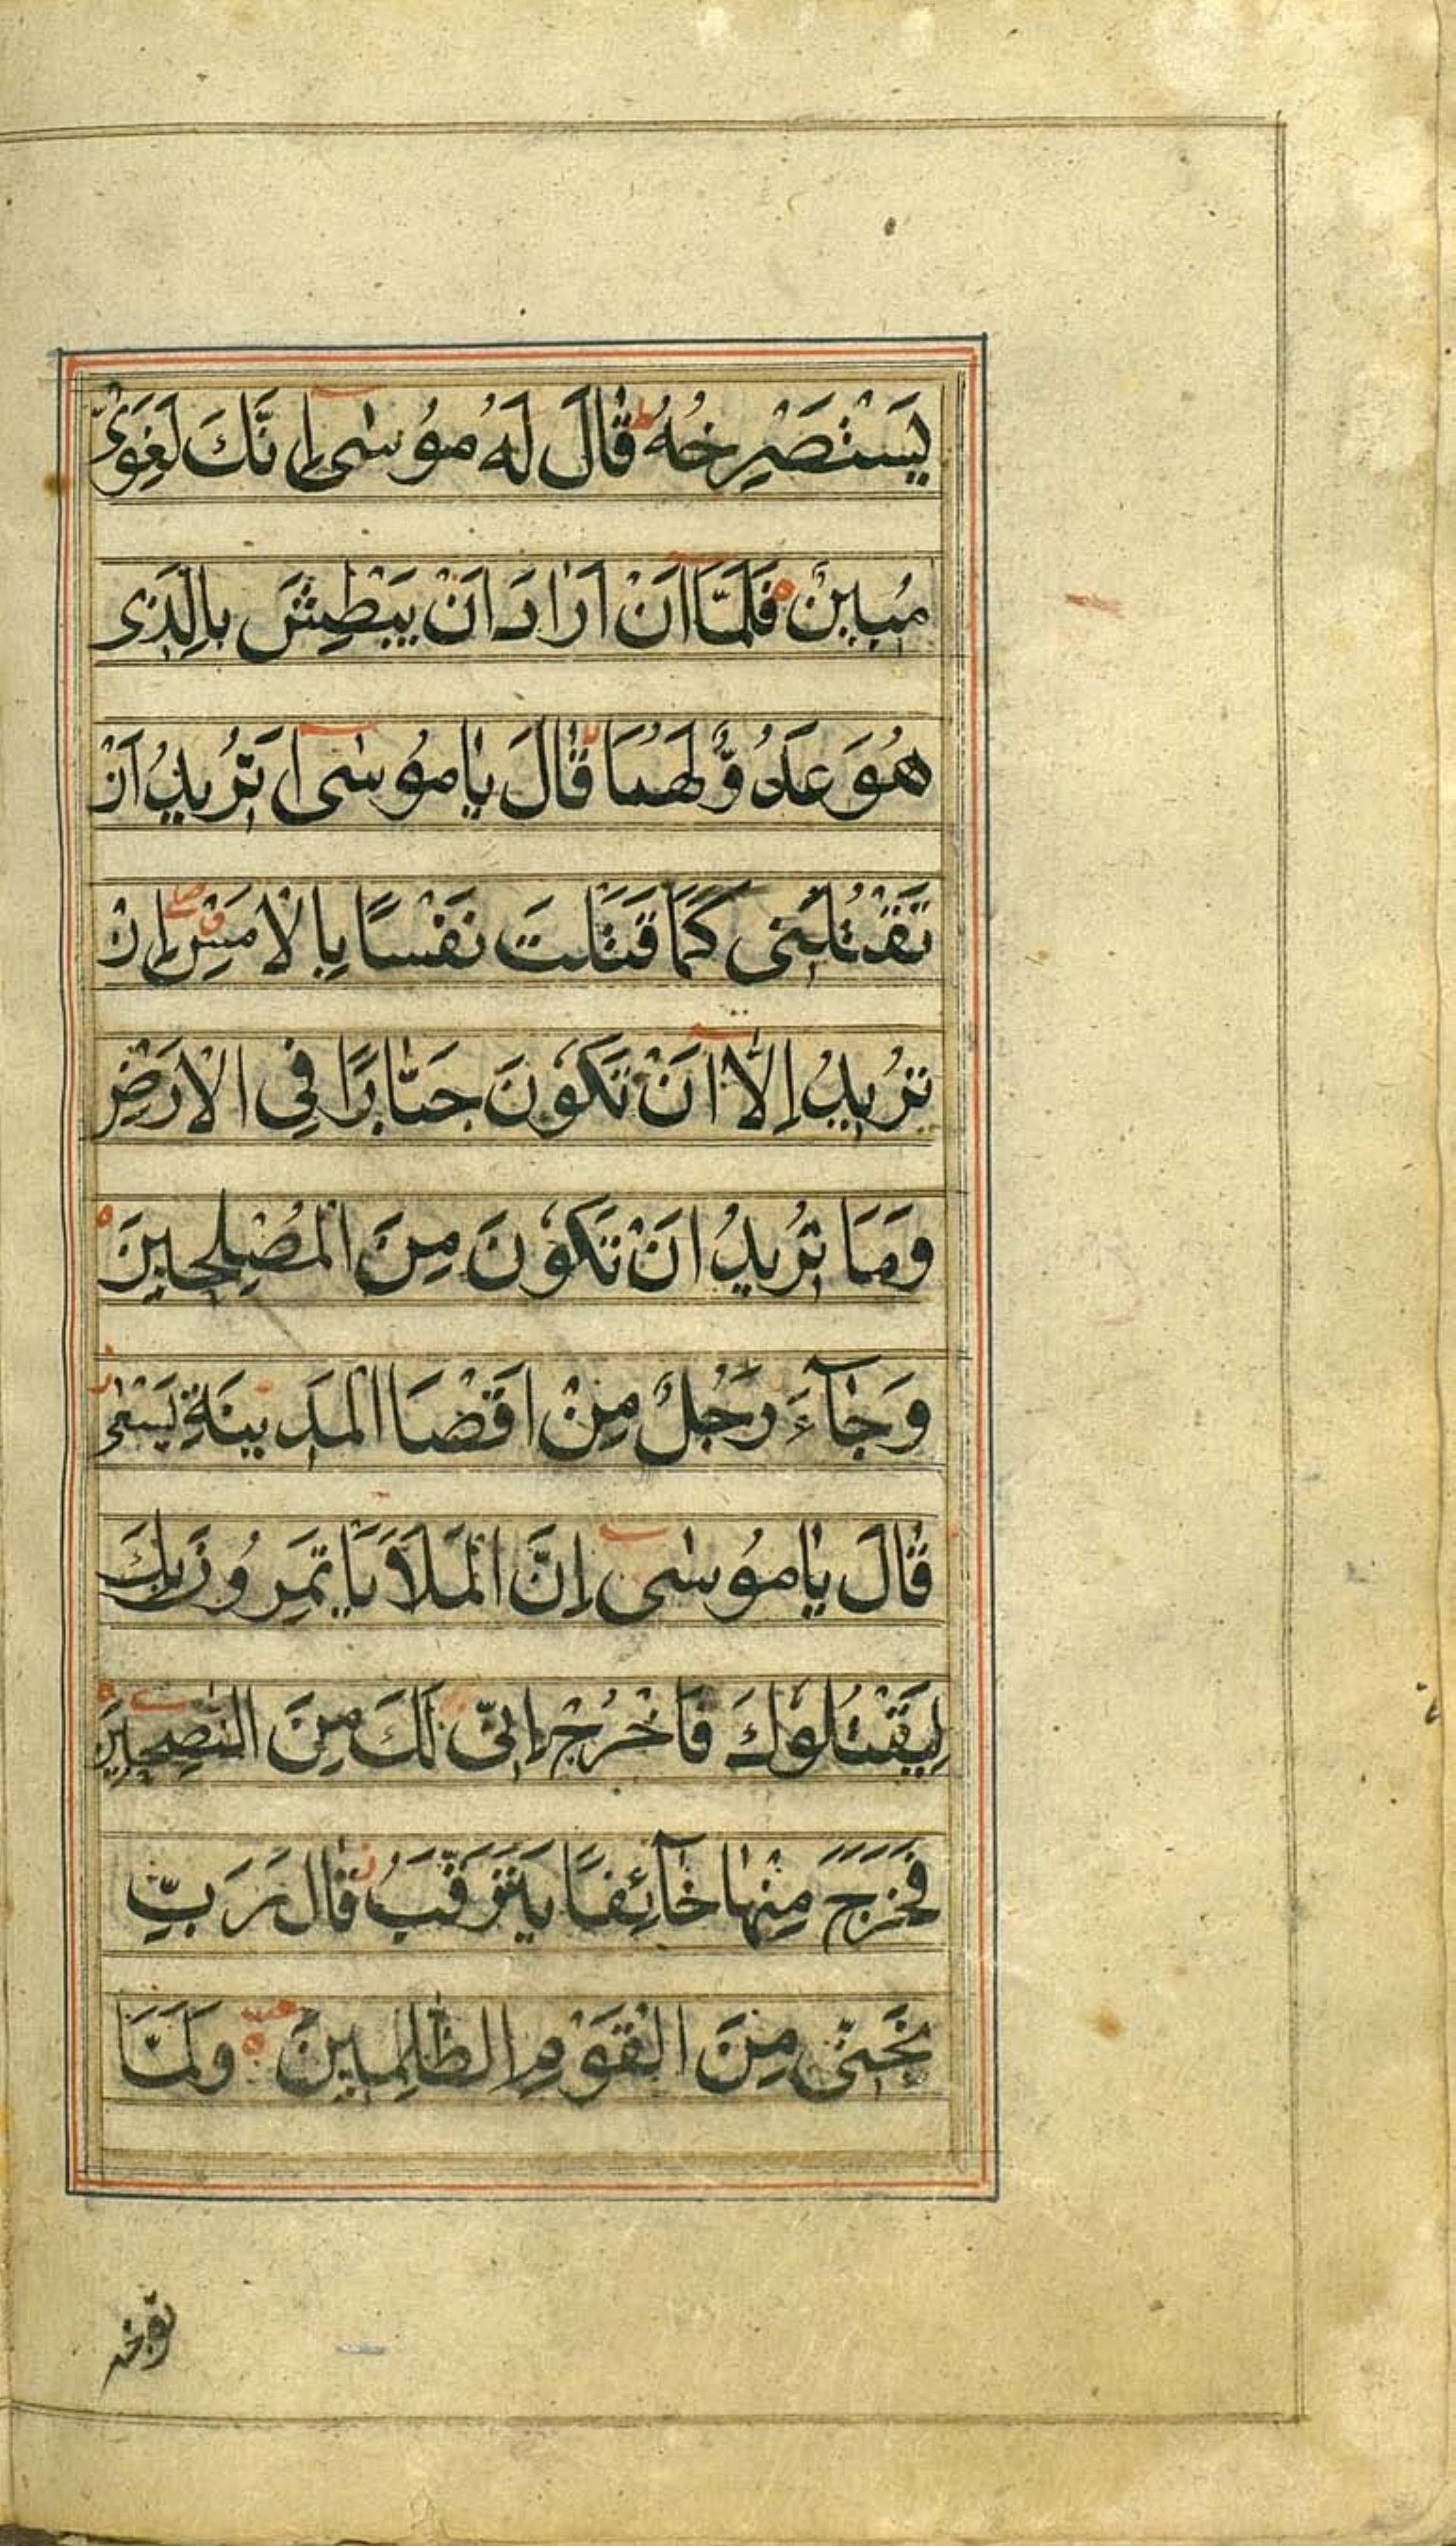 يَسْتَصْرِخُهُ ط قَالَ لَهُ مُوسٰى اِنَّكَ لَغَوِىٌّ
مُبِينٌ فَلَمَّا اَنْ اَرَادَ اَنْ يَبْطِشَ بِالَّذِى
هُوَ عَدُوٌّ لَهُمَا قَالَ يَامُوسٰى اَتُرِيدُ اَنْ
تَقْتُلَنِى كَمَا قَتَلْتَ نَفْسًا بِالْاَمْسِ اِنْ
تُرِيدُ اِلَّا اَنْ تَكُونَ جَبَّارًا فِى الْاَرْضِ
وَمَا تُرِيدُ اَنْ تَكُونَ مِنَ الْمُصْلِحِينَ
وَجَآءَ رَجُلٌ مِنْ اَقْصَا الْمَدِينَةِ يَسْعٰى
قَالَ يَامُوسٰى اِنَّ الْمَلَاَ يَاْتَمِرُونَ بِكَ
لِيَقْتُلُوكَ فَاخْرُجْ اِنِّى لَكَ مِنَ النّٰصِحِينَ
فَخَرَجَ مِنْهَا خَآئِفًا يَتَرَقَّبُ قَالَ رَبِّ
نَجِّنِى مِنَ الْقَوْمِ الظّٰلِمِينَ وَلَمَّا
توجه